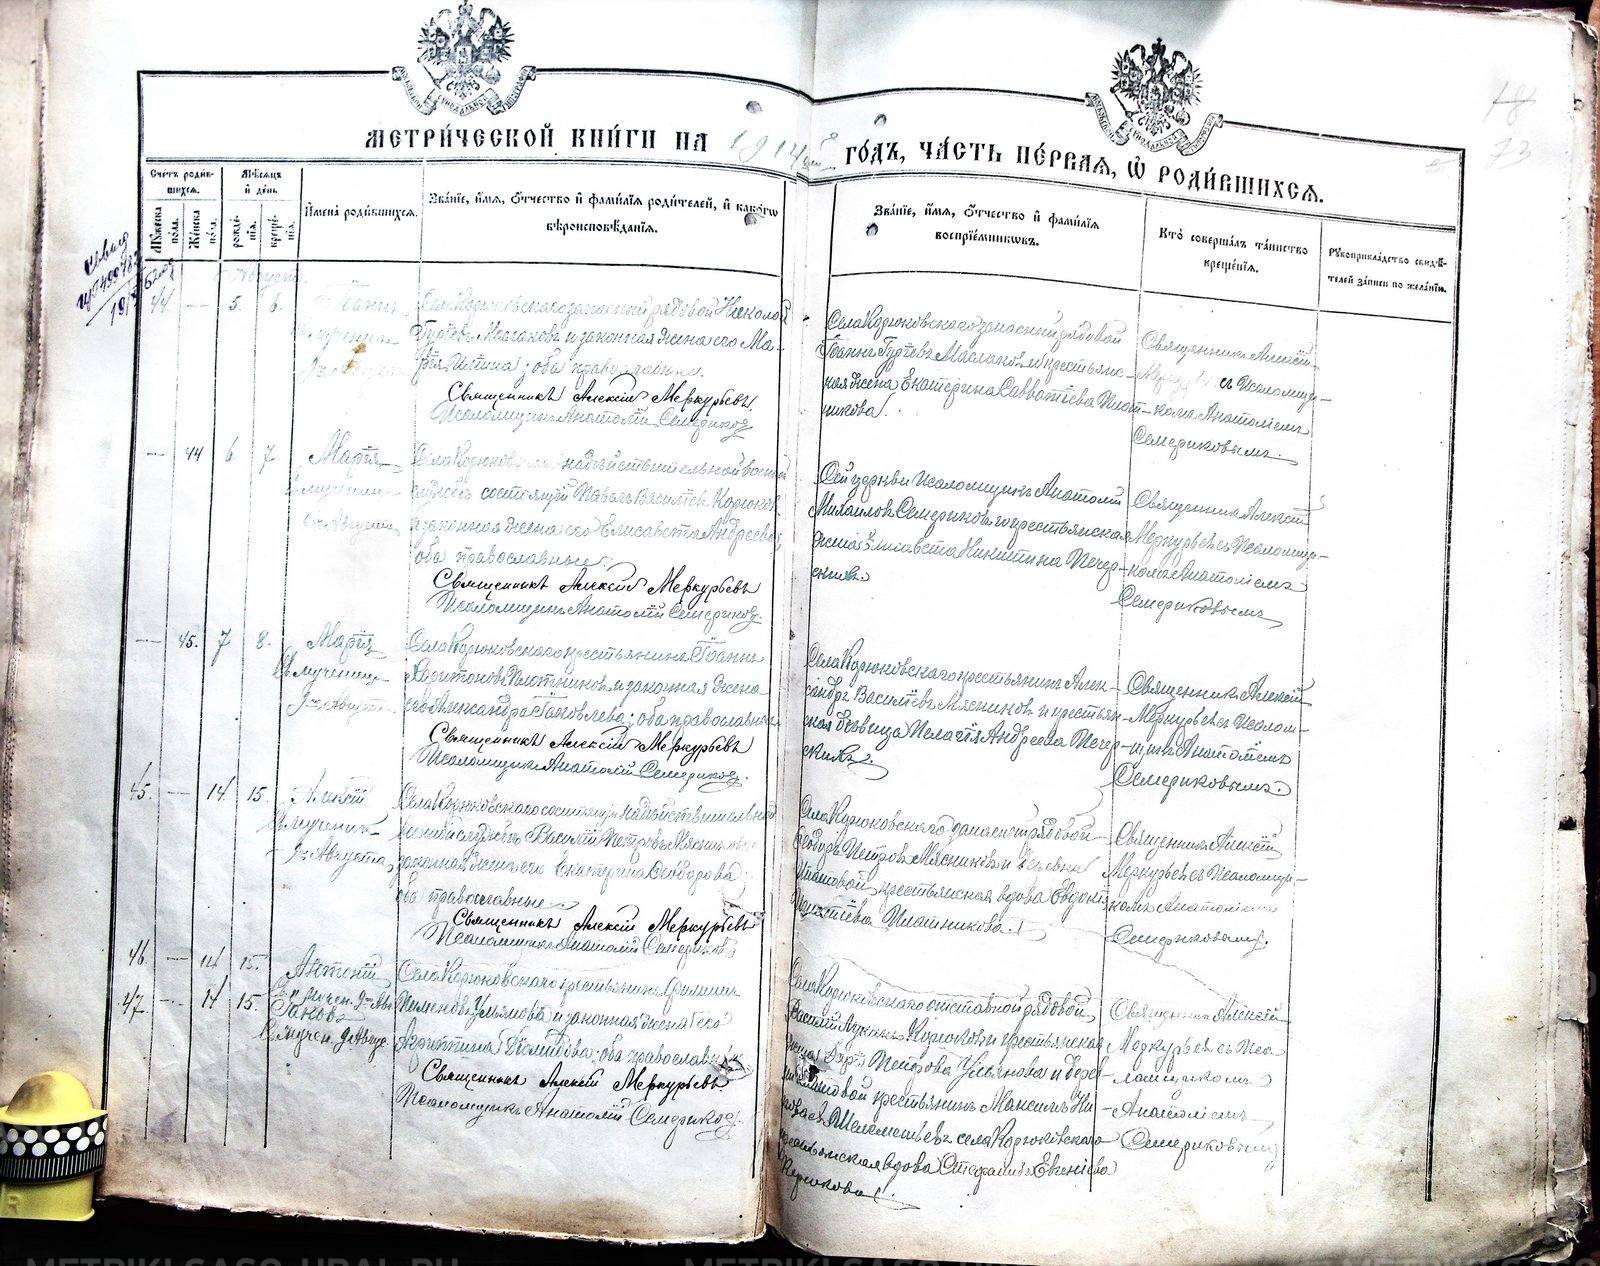 МЕТРИ́ЧЕСКОЙ КНИ́ГИ НА 1914 ГО́ДЪ, ЧА́СТЬ ПЕ́РВАЯ, Ѡ РОДИ́ВШИХСЯ.
18
73
Счетъ роди́вшихся.
Мѣ́сяцъ и де́нь
Имена̀ роди́вшихся.
Зва́ніе, и́мя, о́тчество и фами́лія роди́телей, и како́гѡ
вѣроисповѣ́данія.
Зва́ніе, и́мя, о́тчество и фами́лія
воспріе́мникѡвъ.
Кто̀ соверша́лъ та́инство
креще́нія.
Рукоприкла́дство свидѣ́-
телей за́писи по жела́нію.
Му́жеска по́ла.
Же́нска по́ла.
рожде́нія.
креще́нія.
Августъ
44 — 5. 6. Іоаннъ
Села Корюковскаго запасный рядовой Николай
Гуріевъ Маслаковъ и законная жена его Ма-
оба православные.
Священникъ Алексій Меркурьевъ
Псаломщикъ Анатолій Семериковъ
Села Корюковскаго запасный рядовой
Іоаннъ Гуріевъ Маслаковъ и крестьянс-
кая жена Екатерина Савватіева Плот-
никова.
Священникъ Алексій
Меркурьевъ съ псаломщи-
комъ Анатоліемъ
Семериковымъ.
— 44 6. 7 Марія
Села Корюковскаго на дѣйствительной военной
службѣ состоящій Павелъ Васильевъ Корюковъ
и законная жена его Елисавета Андреева,
оба православные.
Священникъ Алексій Меркурьевъ
Псаломщикъ Анатолій Семериковъ.
Сей церкви псаломщикъ Анатолій
Михаиловъ Семериковъ и крестьянская
жена Елисавета Никитина Печер-
скихъ.
Священникъ Алексій
Меркурьевъ съ псаломщи-
комъ Анатоліемъ
Семериковымъ
— 45. 7 8. Марія
Св. мученицы
9го Августа
Села Корюковскаго крестьянинъ Іоаннъ
Харитоновъ Плотниковъ и законная жена
его Александра Іаковлева; оба православные
Священникъ Алексій Меркурьевъ
Псаломщикъ Анатолій Семериковъ.
Села Корюковскаго крестьянинъ Алек-
сандръ Васильевъ Мясниковъ и крестьян-
ская дѣвица Пелагія Андреева Печер-
скихъ.
Священникъ Алексій
Меркурьевъ съ псалом-
щикомъ Анатоліемъ
Семериковымъ.
45. — 14. 15. Алексій
Св. мученик
9го Августа
Села Корюковскаго состоящій на дѣйствительной
военной службѣ Василій Петровъ Мясниковъ и
законная жена его Екатерина Ѳеодорова;
оба православные.
Священникъ Алексій Меркурьевъ
Псаломщикъ Анатолій Семериковъ
Села Корюковскаго запасной рядовой
Ѳеодоръ Петровъ Мясниковъ и деревни
Шиловой крестьянская вдова Евдокія
Игнатіева Плотникова.
Священникъ Алексій
Меркурьевъ съ псаломщи-
комъ Анатоліемъ
Семериковымъ.
46. — 14 15. Антоній
Св. мучен. 9го Авг.
47. — 14 15. Іаковъ
Св. мучен. 9 Авгус.
Села Корюковскаго крестьянинъ Филиппъ
Пименовъ Ульяновъ и законная жена его
Агриппина Діомидова; оба православные
Священникъ Алексій Меркурьевъ
Псаломщикъ Анатолій Семериковъ.
Села Корюковскаго отставной рядовой
Василій Лукинъ Корюковъ и крестьянская
Петрова Ульянова и дерев-
ни Шиловой крестьянинъ Максимъ Ни-
Шелементьевъ села Корюковскаго
крестьянская вдова Стефанида Евгеніева
Корюкова.
Священникъ Алексій
Меркурьевъ съ пса-
ломщикомъ
Анатоліемъ
Семериковымъ
METRIKI.GASO-URAL.RU